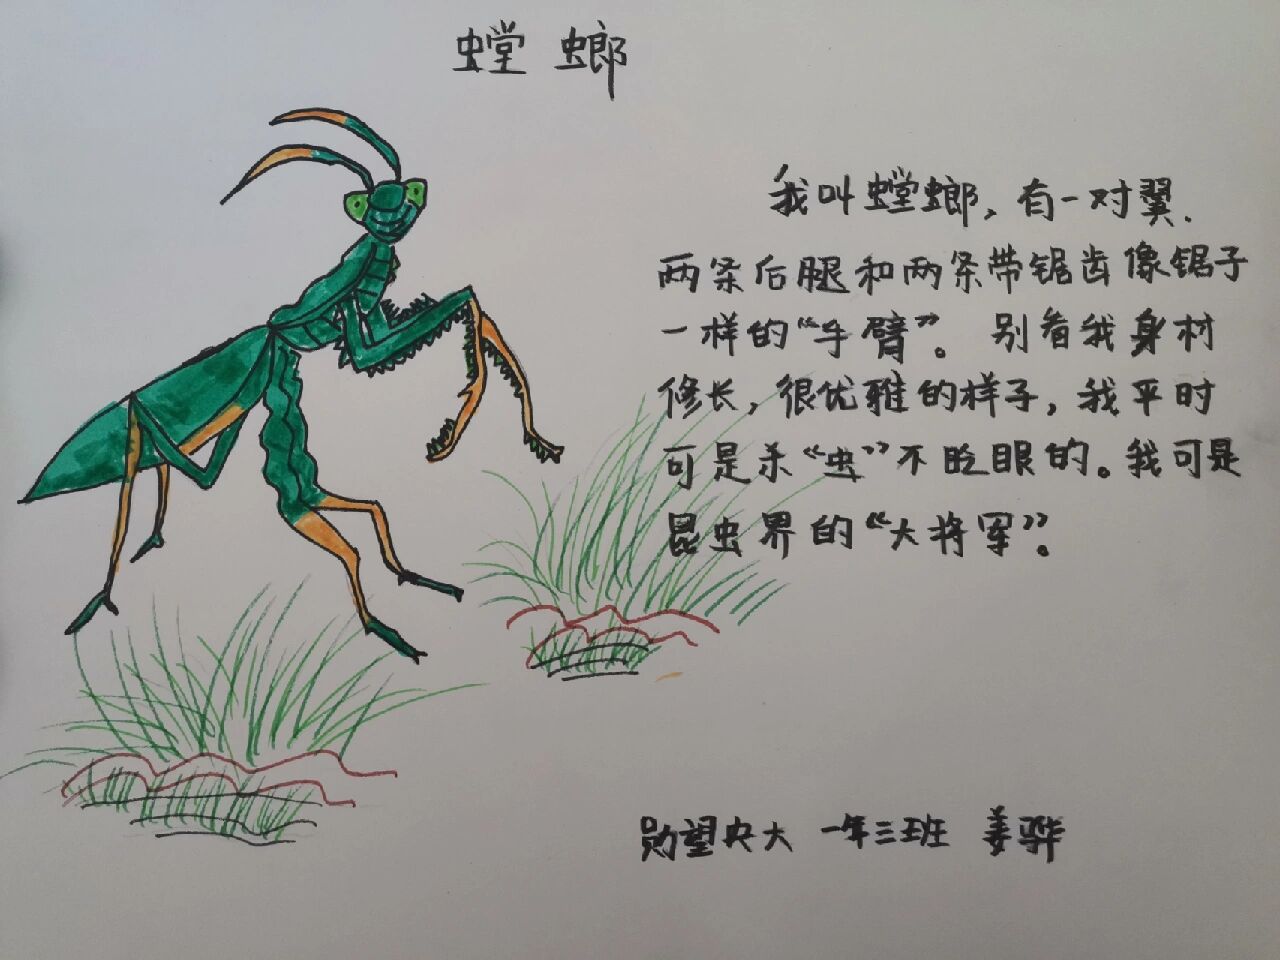 螳螂
我叫螳螂，有一对翼．
两条后腿和两条带锯齿像锯子
一样的“手臂”。别看我身材
修长，很优雅的样子，我平时
可是杀“虫”不眨眼的。我可是
昆虫界的“大将军”。
勋望央大 一年三班 姜骅